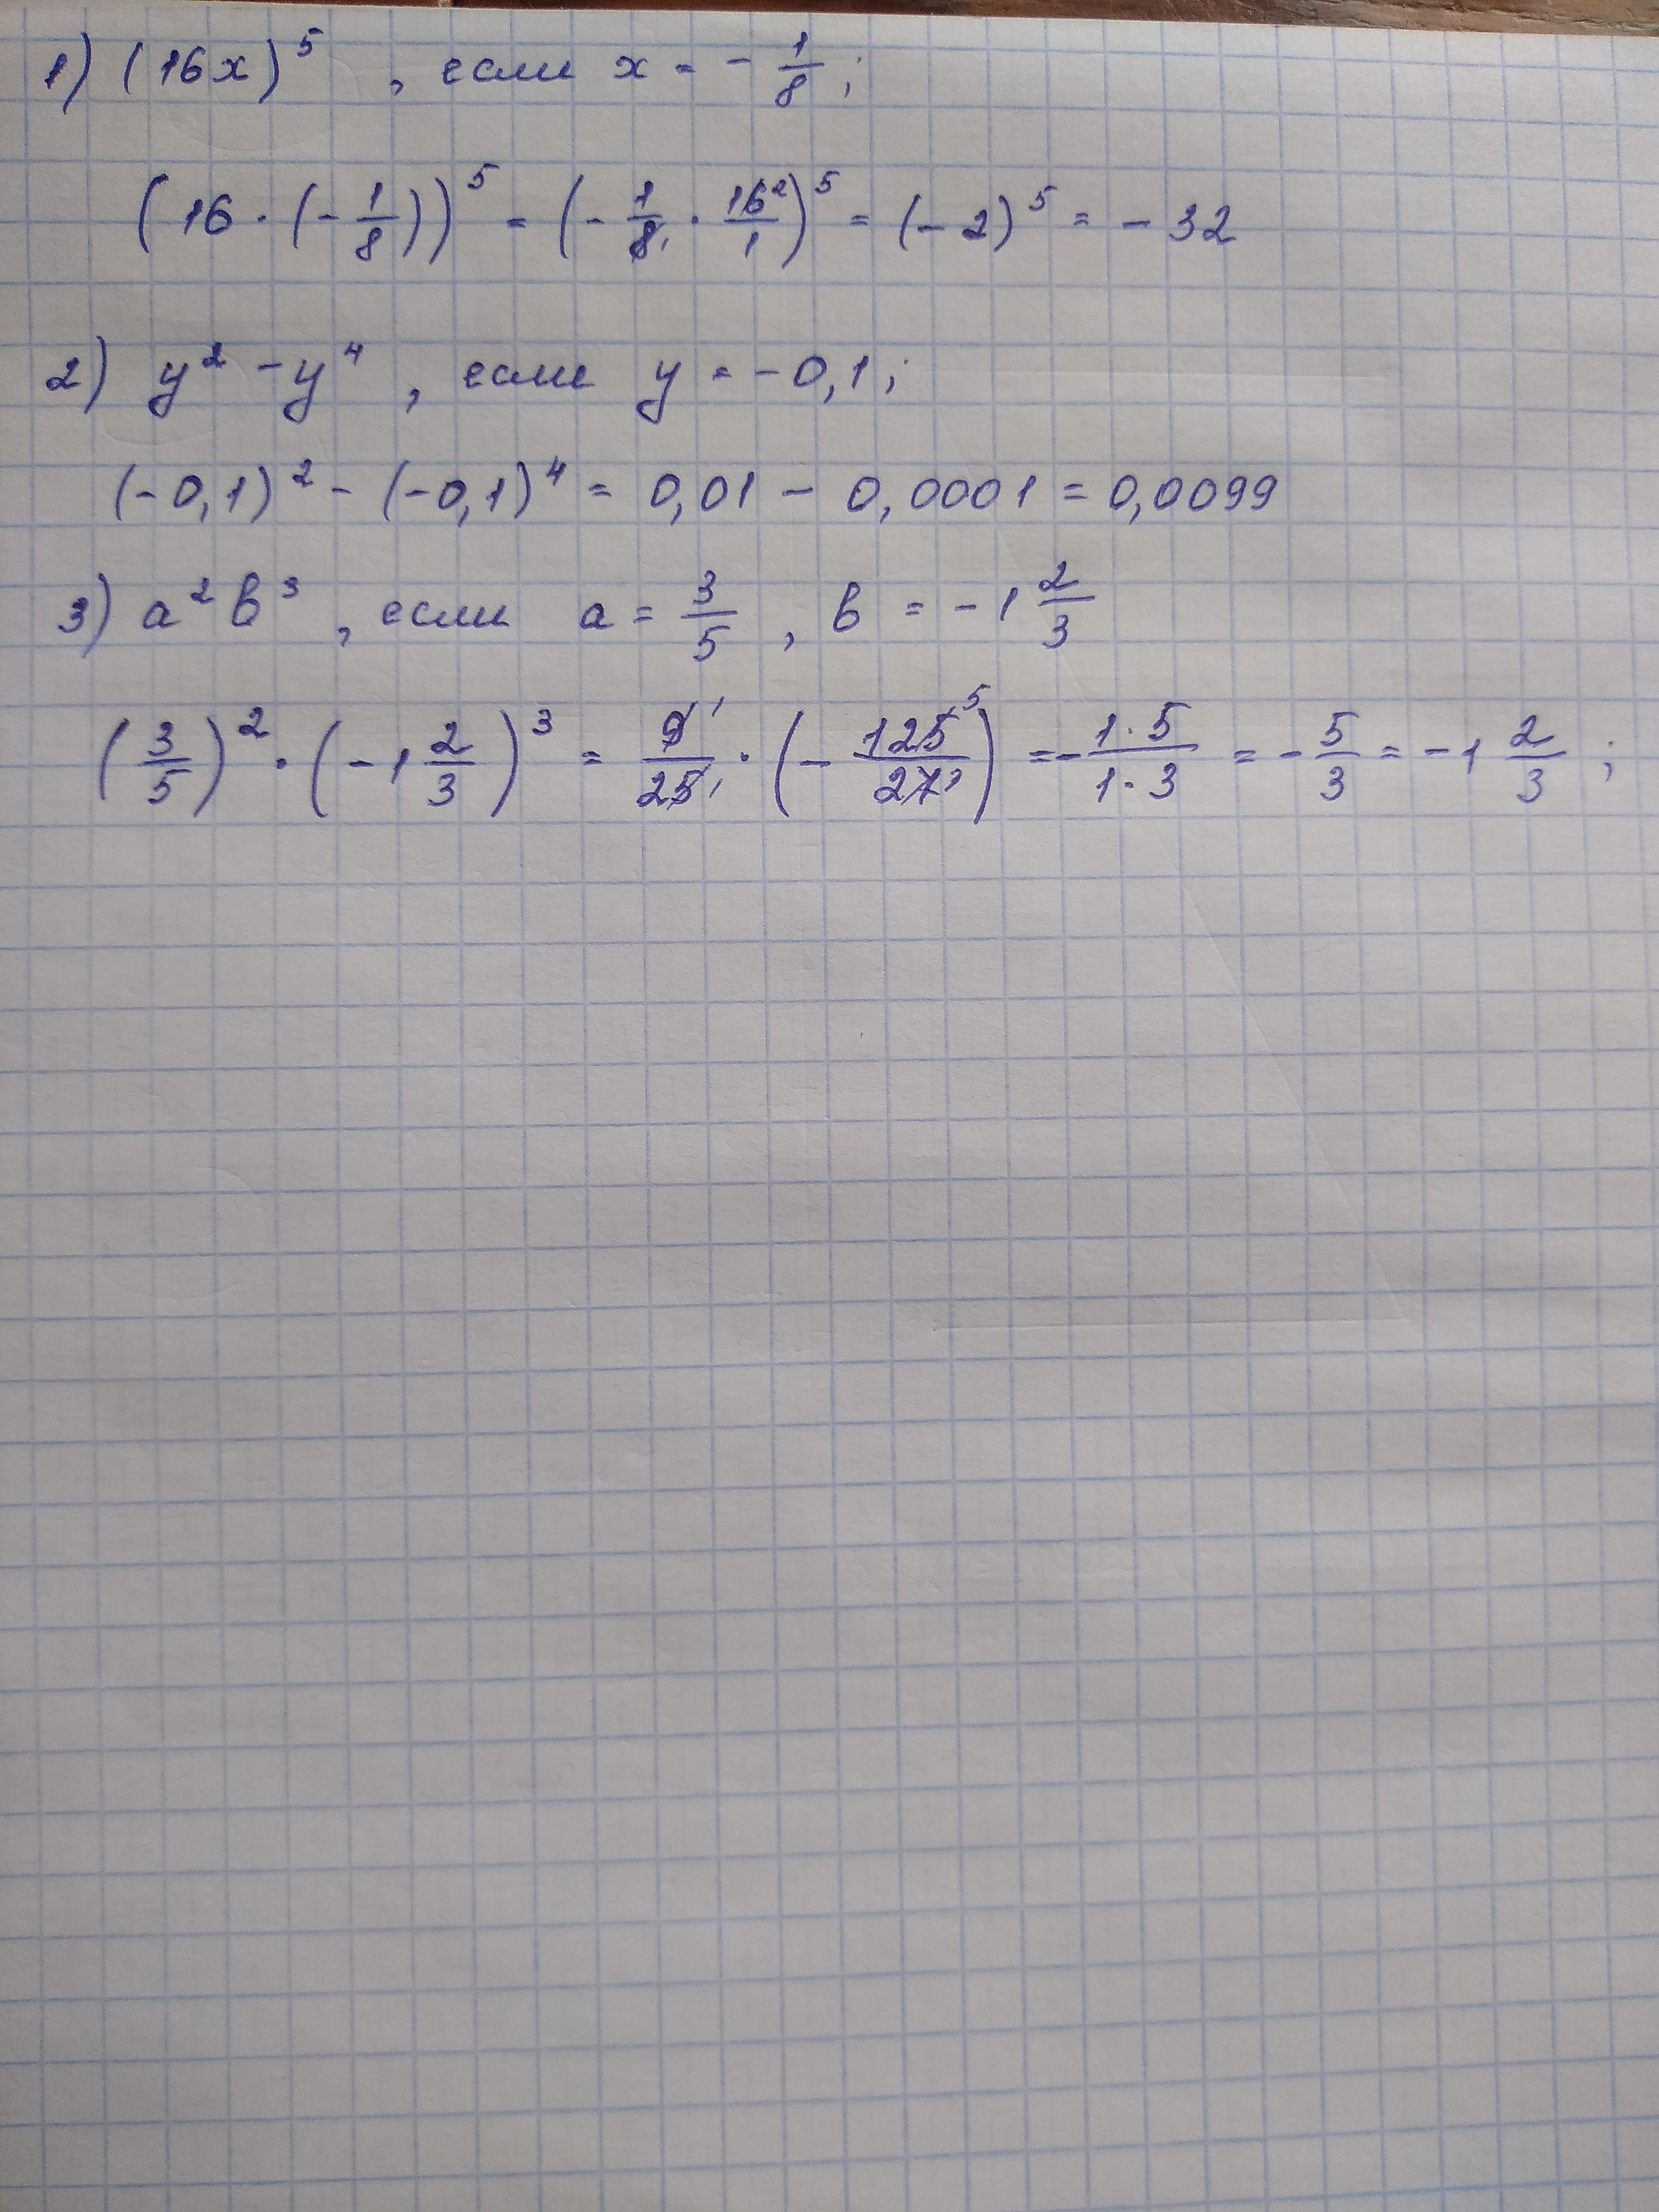 1) (16x)⁵, если x = - 1/8;
(16 · (- 1/8))⁵ = (- 1/8₁ · 16²/1)⁵ = (-2)⁵ = - 32
2) y² - y⁴, если y = - 0,1;
(-0,1)² - (-0,1)⁴ = 0,01 - 0,0001 = 0,0099
3) a²b³, если a = 3/5, b = - 1 2/3
(3/5)² · (-1 2/3)³ = 9¹/25₁ · (- 125⁵/27³) = - 1·5/1·3 = - 5/3 = - 1 2/3;